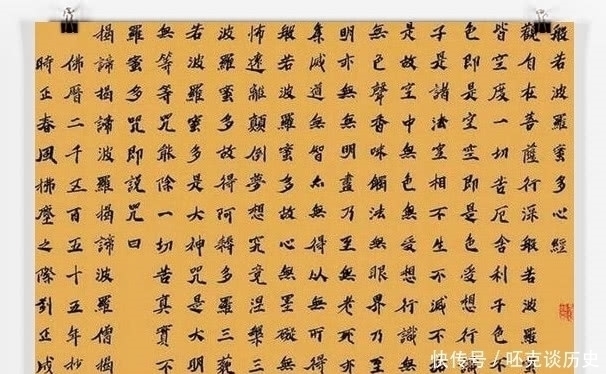 般若波羅蜜多心經
觀自在菩薩行深般若波羅
皆空度一切苦厄舍利子色不
色即是空空即是色受想行
子是諸法空相不生不滅不
是故空中無色無受想行識無
無色聲香味觸法無眼界乃至
明亦無無明盡乃至無老死亦
集滅道無智亦無得以無所得
般若波羅蜜多故心無罣礙無
怖遠離顛倒夢想究竟涅槃三
波羅蜜多故得阿耨多羅三藐
若波羅蜜多是大神咒是大明
無等等咒能除一切苦真實不
羅蜜多咒即說咒曰
揭諦揭諦波羅揭諦波羅僧揭
佛曆二千五百五十五年抄
時正春風拂塵之際劉正成
快传号／呸克谈历史